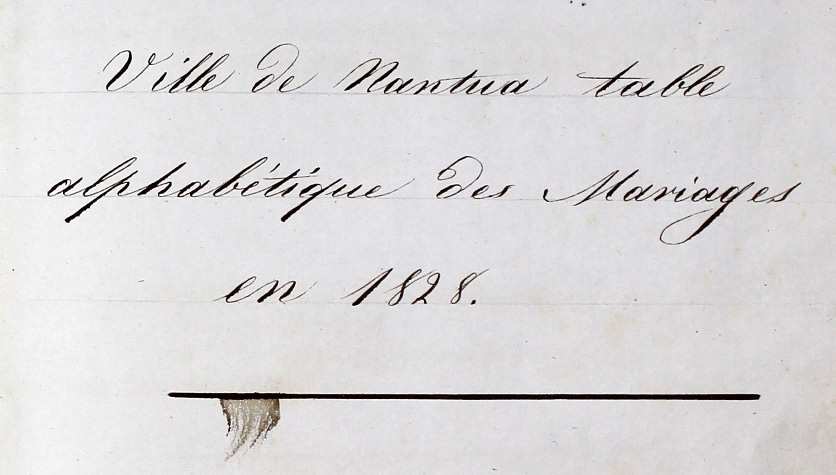 Ville de Nantua table
alphabétique des Mariages
en 1828.